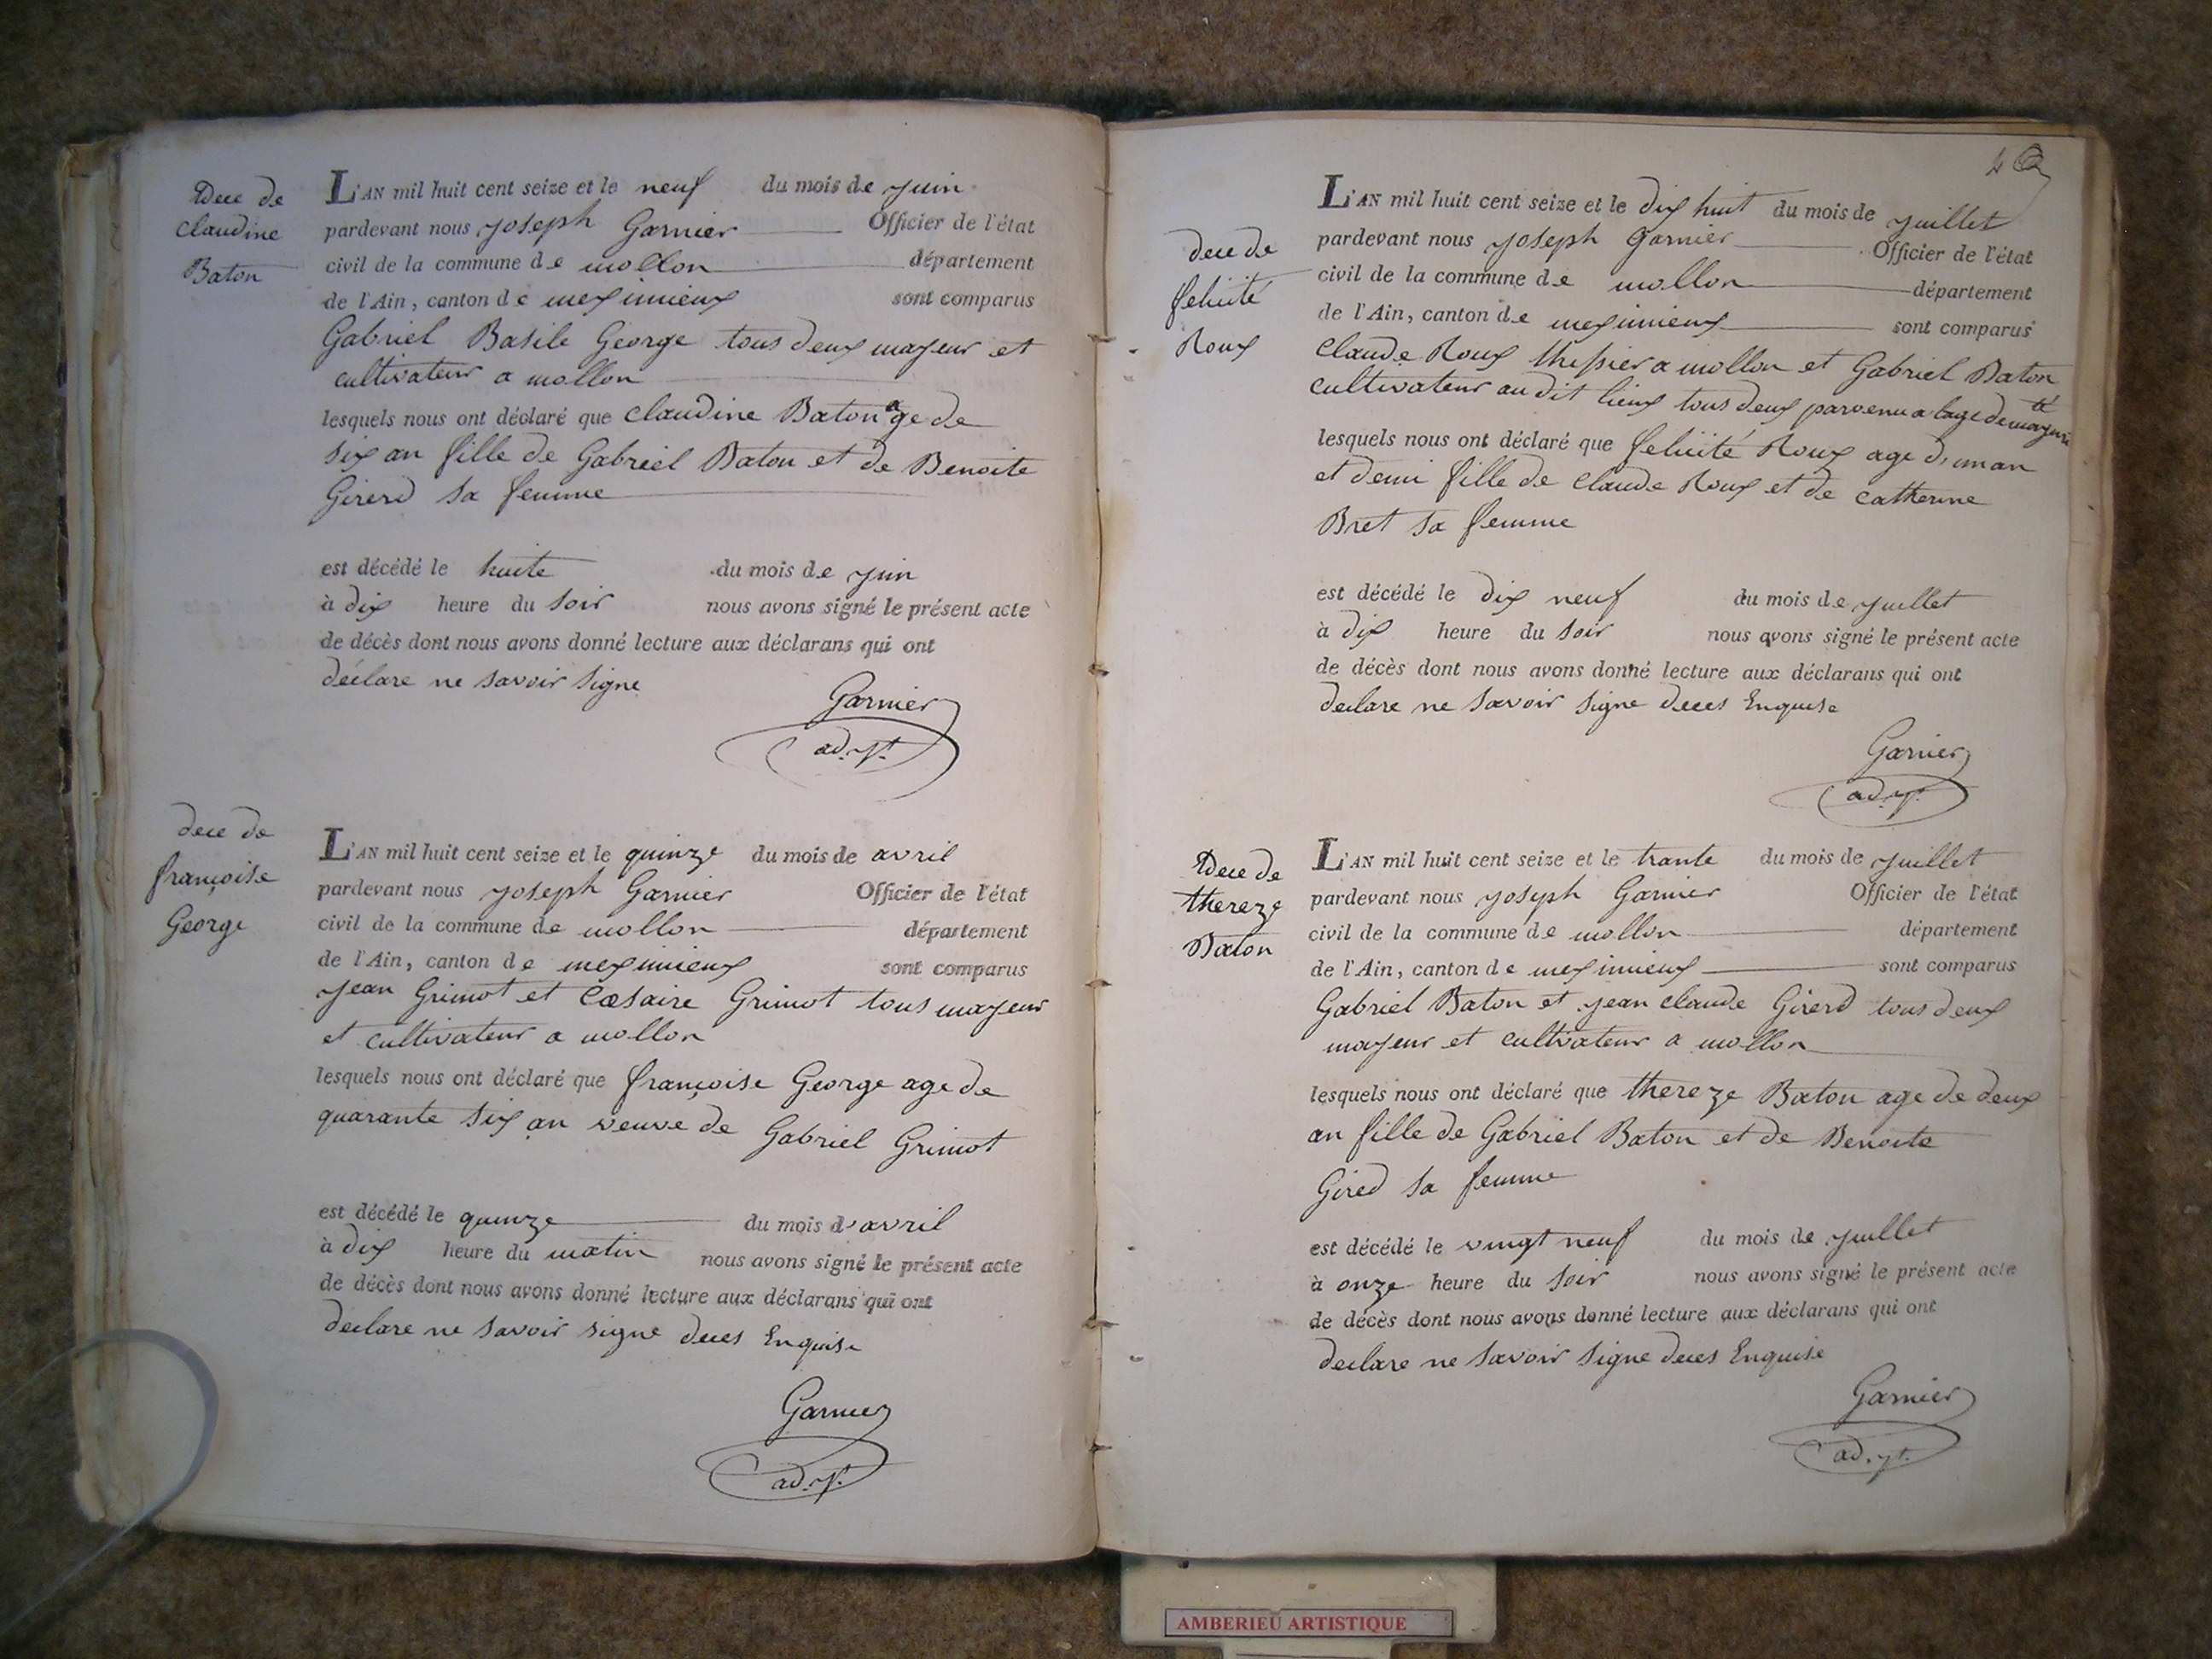 Dece de
claudine
Baton
L'AN mil huit cent seize et le neuf du mois de juin
pardevant nous joseph Garnier Officier de l'état
civil de la commune de mollon département
de l'Ain, canton de meximieux sont comparus
Gabriel Basile George tous deux majeur et
cultivateur a mollon
lesquels nous ont déclaré que claudine Baton age de
six an fille de Gabriel Baton et de Benoite
Girerd sa femme
est décédé le huite du mois de juin
à dix heure du soir nous avons signé le présent acte
de décès dont nous avons donné lecture aux déclarans qui ont
déclare ne savoir signe
Garnier
ad.jt.
dece de
françoise
George
L'AN mil huit cent seize et le quinze du mois de avril
pardevant nous joseph Garnier Officier de l'état
civil de la commune de mollon département
de l'Ain, canton de meximieux sont comparus
jean Grimot et Cæsaire Grimot tous majeur
et cultivateur a mollon
lesquels nous ont déclaré que françoise George age de
quarante six an veuve de Gabriel Grimot
est décédé le quinze du mois d'avril
à dix heure du matin nous avons signé le présent acte
de décès dont nous avons donné lecture aux déclarans qui ont
declare ne savoir signe deces Enquise
Garnier
ad.jt.
dece de
felicité
Roux
L'AN mil huit cent seize et le dix huit du mois de juillet
pardevant nous joseph Garnier Officier de l'état
civil de la commune de mollon département
de l'Ain, canton de meximieux sont comparus
claude Roux thissier a mollon et Gabriel Baton
cultivateur au dit lieux tous deux parvenu a lage de majurité
lesquels nous ont déclaré que felicité Roux age d'un an
et demi fille de claude Roux et de catherine
Bret sa femme
est décédé le dix neuf du mois de juillet
à dix heure du soir nous avons signé le présent acte
de décès dont nous avons donné lecture aux déclarans qui ont
declare ne savoir signe deces Enquise
Garnier
ad.jt.
Dece de
thereze
Baton
L'AN mil huit cent seize et le trante du mois de juillet
pardevant nous joseph Garnier Officier de l'état
civil de la commune de mollon département
de l'Ain, canton de meximieux sont comparus
Gabriel Baton et jean claude Girerd tous deux
majeur et cultivateur a mollon
lesquels nous ont déclaré que thereze Baton age de deux
an fille de Gabriel Baton et de Benoite
Gired sa femme
est décédé le vingt neuf du mois de juillet
à onze heure du soir nous avons signé le présent acte
de décès dont nous avons donné lecture aux déclarans qui ont
declare ne savoir signe deces Enquise
Garnier
ad.jt.
AMBERIEU ARTISTIQUE